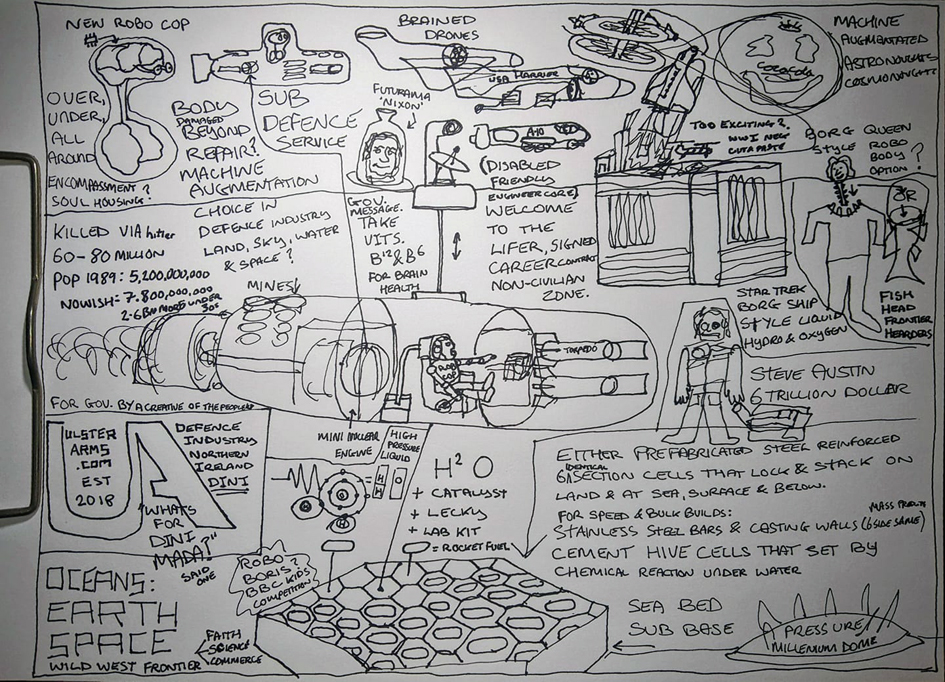 NEW ROBO COP
OVER,
UNDER,
ALL
AROUND
ENCOMPASSMENT?
SOUL HOUSING?
BODY
DAMAGED
BEYOND
REPAIR?
MACHINE
AUGMENTATION
SUB
DEFENCE
SERVICE
BRAINED
DRONES
USA HARRIER
FUTURAMA
'NIXON'
A-10
(DISABLED
FRIENDLY
ENGINEER CORE)
WELCOME
TO THE
LIFER, SIGNED
CAREER CONTRACT
NON-CIVILIAN
ZONE.
MACHINE
AUGMENTATED
ASTRONOUGHTS
COSMONOUGHT
CocaCola
TOO EXCITING?
WWI NEW
BORG QUEEN
STYLE ROBO
BODY ?
OPTION?
OR
FISH
HEAD
FRONTIER
HEARDERS
KILLED VIA hitler
60-80 MILLION
POP 1989: 5,200,000,000
NOWISH = 7.800,000,000
2.6BN MORE UNDER
30s
CHOICE IN
DEFENCE INDUSTRY
LAND, SKY, WATER
& SPACE?
GOV.
MESSAGE.
TAKE
VITS.
B12 & B6
FOR BRAIN
HEALTH
MINES
ROBO
COP
TORPEDO
STAR TREK
BORG SHIP
STYLE LIQUID
HYDRO & OXYGEN
STEVE AUSTIN
6 TRILLION DOLLAR
FOR GOV. BY A CREATIVE OF THE PEOPLE
ULSTER
ARMS
.COM
EST
2018
UA
DEFENCE
INDUSTRY
NORTHERN
IRELAND
DINI
"WHATS
FOR
DINI
MADA?"
SAID
ONE
MINI NUCLEAR
ENGINE
HIGH
PRESSURE
LIQUID
H H
O
H2O
+ CATALYST
+ LECKY
+ LAB KIT
= ROCKET FUEL
EITHER PREFABRICATED STEEL REINFORCED
IDENTICAL
6 SECTION CELLS THAT LOCK & STACK ON
LAND & AT SEA, SURFACE & BELOW.
FOR SPEED & BULK BUILDS:
MASS PRODUCE
STAINLESS STEEL BARS & CASTING WALLS (6 SIDE SAME)
CEMENT HIVE CELLS THAT SET BY
CHEMICAL REACTION UNDER WATER
ROBO
BORIS?
BBC KIDS
COMPETITION
OCEANS:
EARTH
SPACE
WILD WEST FRONTIER
FAITH
SCIENCE
COMMERCE
SEA BED
SUB BASE
PRESSURE/
MILLENIUM DOME